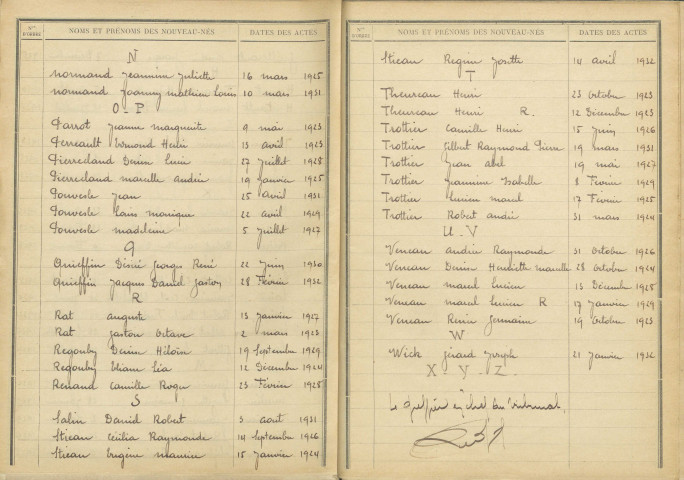 Nos D'ORDRE
NOMS ET PRÉNOMS DES NOUVEAU-NÉS
DATES DES ACTES
N
Normand Jeannine Juliette 16 mars 1925
Normand Joanny Mathieu Louis 10 mars 1931
O-P
Parrot Jeanne Marguerite 9 mai 1923
Perreault Edmond Henri 13 avril 1923
Pierredand Denise Lucie 27 Juillet 1928
Pierredand Marcelle Andrée 19 Janvier 1925
Ponveste Jean 25 avril 1931
Ponveste Louis Monique 22 avril 1929
Ponveste Madeleine 5 Juillet 1927
Q
Quieffin Désiré Georges René 22 Juin 1930
Quieffin Jacques Daniel Gaston 28 Février 1932
R
Rat Auguste 13 Janvier 1927
Rat Gaston Octave 2 mars 1923
Regouby Denise Héloïse 19 Septembre 1929
Regouby Eliane Léa 12 Décembre 1924
Renaud Camille Roger 23 Février 1928
S
Salin Daniel Robert 3 août 1931
Stican Cécilia Raymonde 14 Septembre 1926
Stican Eugène Maurice 15 Janvier 1924
Nos D'ORDRE
NOMS ET PRÉNOMS DES NOUVEAU-NÉS
DATES DES ACTES
Stican Regine Josette 14 avril 1932
T
Theureau Henri 23 Octobre 1923
Theureau Henri R. 12 Décembre 1923
Trottier Camille Henri 15 Juin 1926
Trottier Gilbert Raymond Pierre 19 mars 1931
Trottier Jean Abel 19 mai 1927
Trottier Jeannine Isabelle 8 Février 1929
Trottier Lucien Marcel 17 Février 1925
Trottier Robert André 31 mars 1924
U-V
Veneau Andrée Raymonde 31 Octobre 1926
Veneau Denise Henriette Marcelle 28 Octobre 1924
Veneau Marcel Lucien 13 Décembre 1928
Veneau Marcel Lucien R 17 Janvier 1929
Veneau René Germaine 19 Octobre 1923
W
Wick Gérard Joseph 21 Janvier 1932
X Y - Z -
Le Greffier en chef du Tribunal,